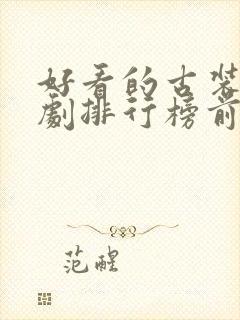 好看的古装
剧排行榜前
范醒